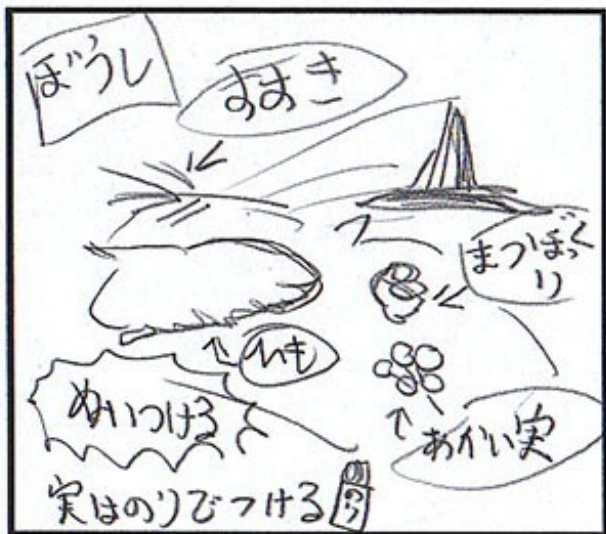 ぼうし
すすき
まつぼっく
り
いも
ぬいつける
あかい実
実はのりでつける
のり